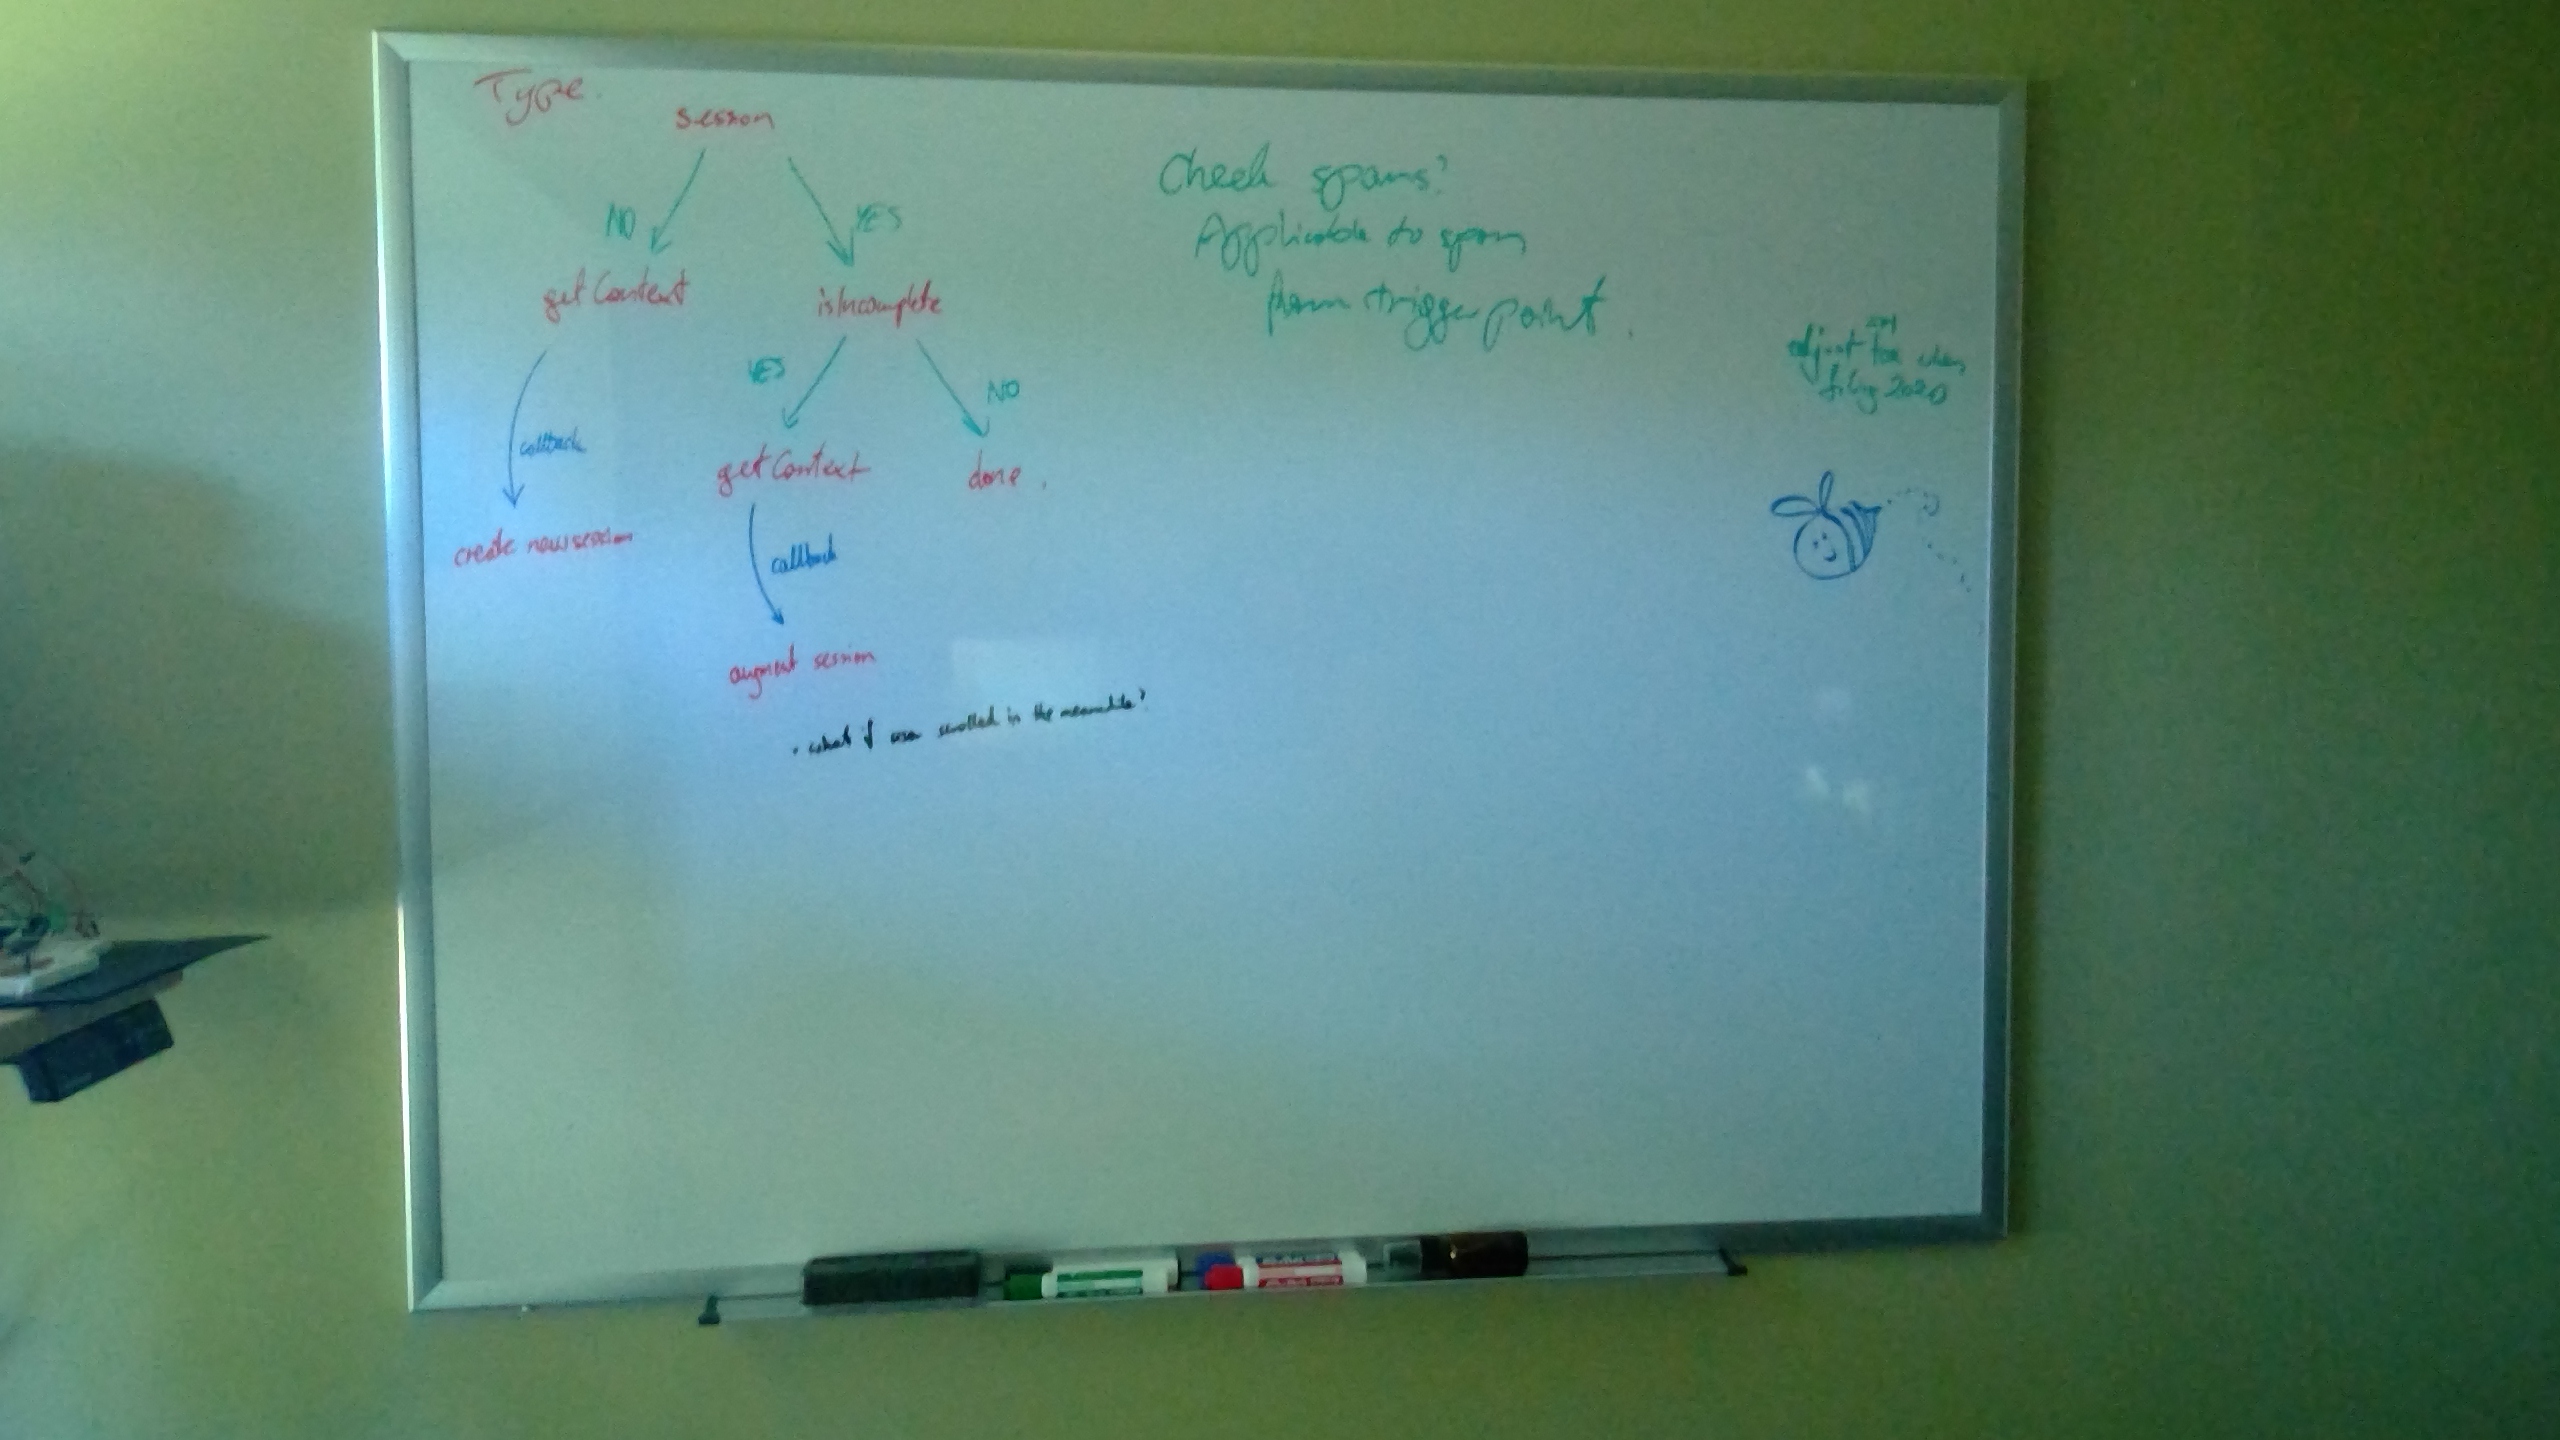 Type.
session
NO
YES
getContext
isIncomplete
callback
YES
NO
create new session
getContext
done.
callback
augment session
• what if user scrolled in the meanwhile?
Check spans?
Applicable to span
from trigger point.
adjust tax when
filing 2020